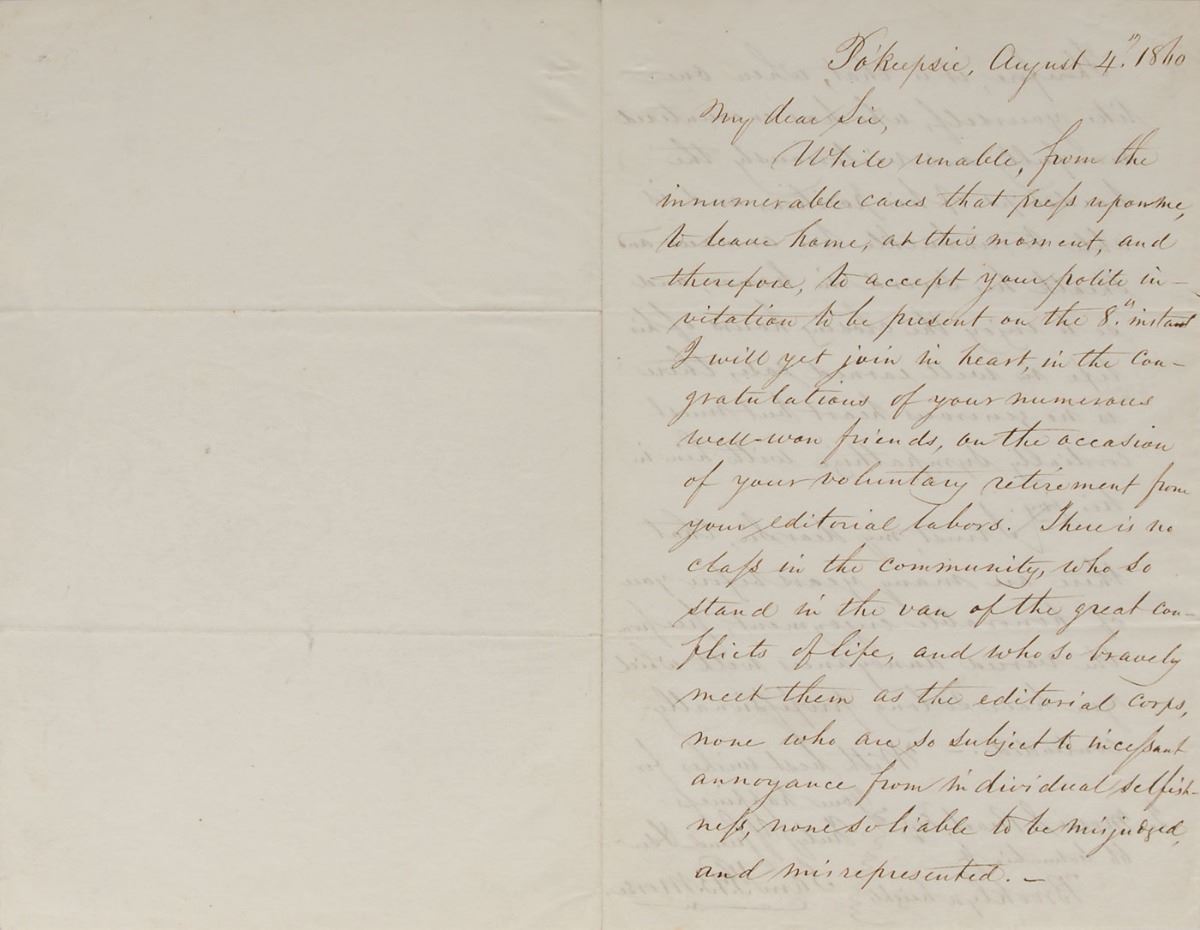 Po'keepsie, August 4th. 1860
My dear Sir,
While unable, from the
innumerable cares that press upon me,
to leave home, at this moment, and
therefore, to accept your polite in-
vitation to be present on the 8th. instant
I will yet join in heart, in the con-
gratulations of your numerous
well-won friends, on the occasion
of your voluntary retirement from
your editorial labors. There is no
class in the community, who so
stand in the van of the great con-
flicts of life, and who so bravely
meet them as the editorial corps,
none who are so subject to incessant
annoyance from individual selfish-
ness, none so liable to be misjudged,
and misrepresented. —